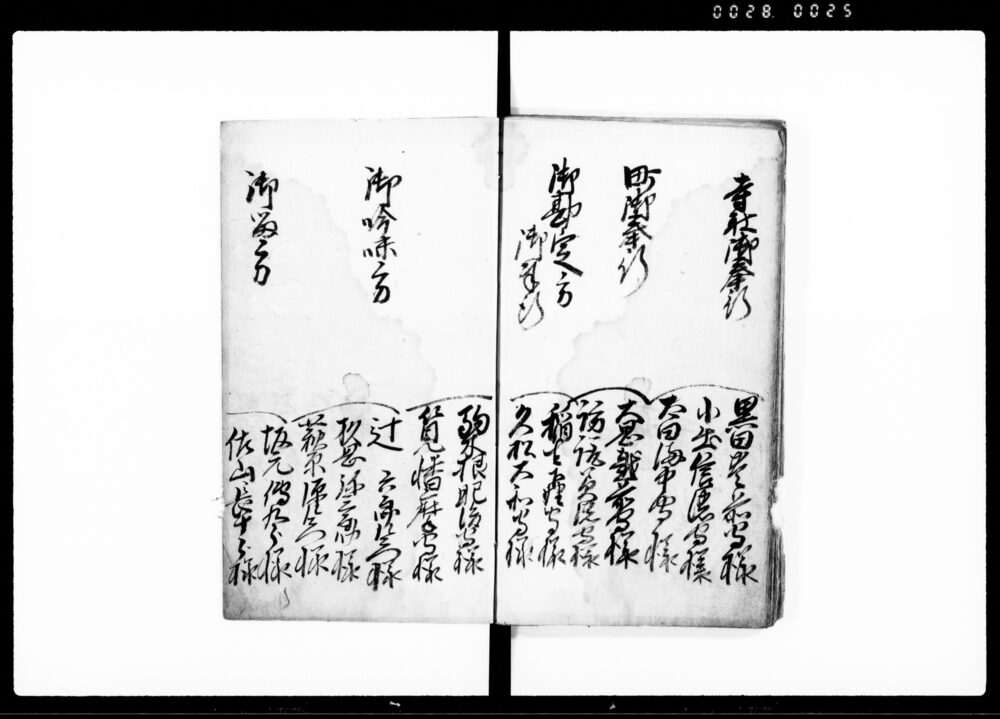 寺社御奉行
黒田豊前守様
小出信濃守様
太田備中守様
町御奉行
大岡越前守様
諏訪美濃守様
御勘定方
御奉行
稲生下野守様
久松大和守様
駒木根肥後守様
筧播磨守様
御吟味方
辻六郎左衛門様
杉岡弥太郎様
萩原源左衛門様
御留方
坂元
様
佐山長十郎様
0028. 0025